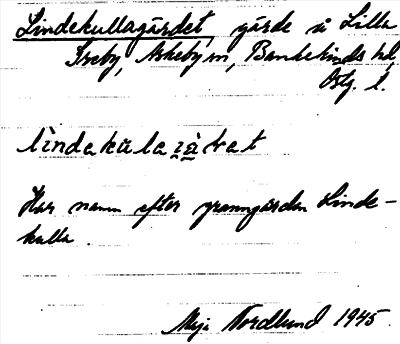 Lindekullagärdet, gärde å Lilla
Greby, Askeby sn, Bankekinds hd,
Östg. l.
lìndakùlajä̀rat
Har namn efter granngården Linde-
kulla.
Maj Nordlund 1945.